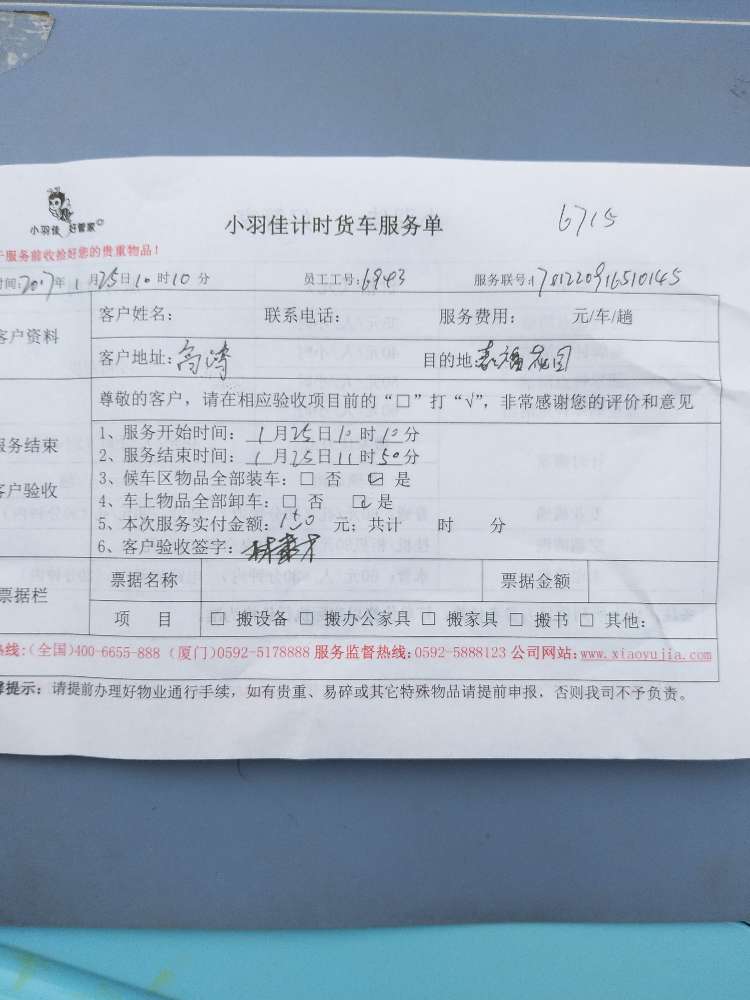 小羽佳 好管家
小羽佳计时货车服务单
6715
服务前收捡好您的贵重物品!
时间:2017年1月25日10时10分 员工工号:6943 服务联号:
客户资料
客户姓名: 联系电话: 服务费用: 元/车/趟
客户地址: 目的地 花园
服务结束
客户验收
尊敬的客户,请在相应验收项目前的“□”打“√”,非常感谢您的评价和意见
1、服务开始时间:1月25日10时10分
2、服务结束时间:1月25日11时50分
3、候车区物品全部装车:□ 否 ☑ 是
4、车上物品全部卸车:□ 否 ☑ 是
5、本次服务实付金额:150 元;共计 时 分
6、客户验收签字:
票据栏
票据名称 票据金额
项 目 □ 搬设备 □ 搬办公家具 □ 搬家具 □ 搬书 □ 其他:
热线:(全国)400-6655-888 (厦门)0592-5178888 服务监督热线:0592-5888123 公司网站:www.xiaoyujia.com
提示:请提前办理好物业通行手续,如有贵重、易碎或其它特殊物品请提前申报,否则我司不予负责。